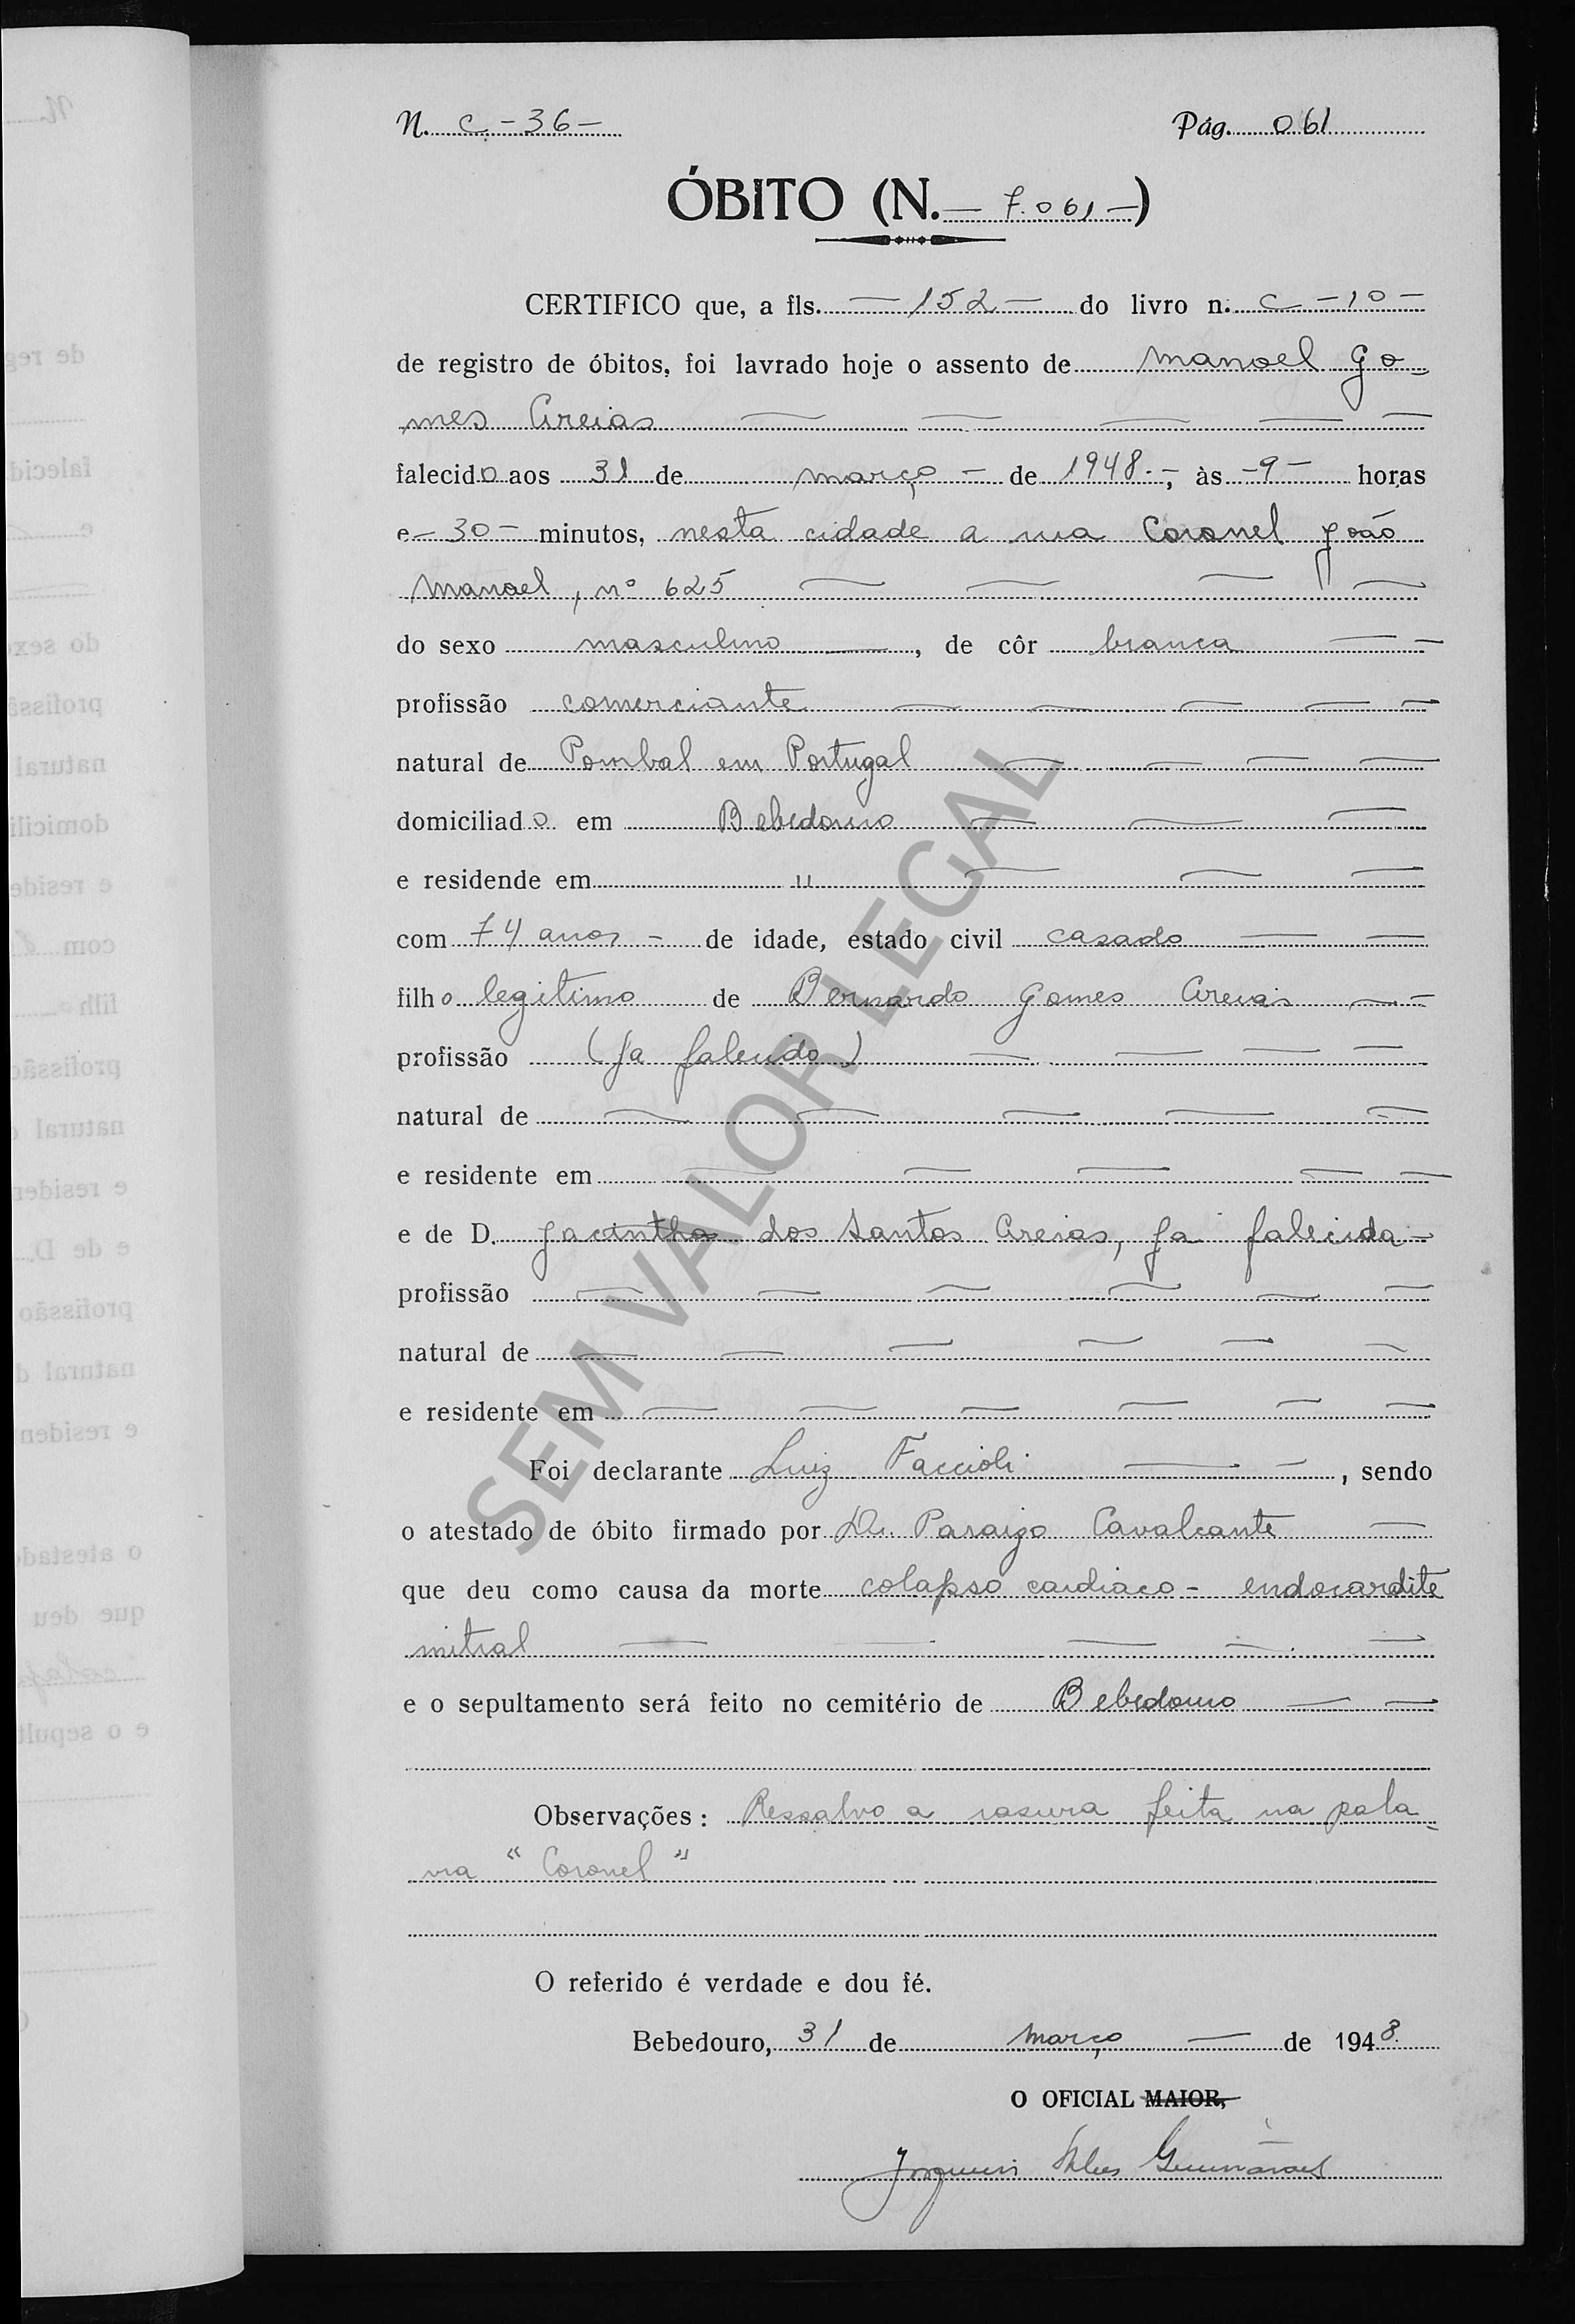 N. C - 36 - Pág. 061
ÓBITO (N. - 7.061 -)
CERTIFICO que, a fls. - 152 - do livro n. C - 10 -
de registro de óbitos, foi lavrado hoje o assento de Manoel Go-
mes Areias
falecido aos 31 de março - de 1948 -, às - 9 - horas
e - 30 - minutos, nesta cidade a rua Coronel João
Manoel, nº 625
do sexo masculino, de côr branca
profissão comerciante
natural de Pombal em Portugal
domiciliado em Bebedouro
e residende em "
com 74 anos - de idade, estado civil casado
filho legitimo de Bernardo Gomes Areias
profissão (Ja falecido)
natural de
e residente em
e de D. Jacintha dos Santos Areias, ja falecida -
profissão
natural de
e residente em
Foi declarante Luiz Faccioli, sendo
o atestado de óbito firmado por Dr. Paraizo Cavalcante
que deu como causa da morte colapso cardiaco - endocardite
mitral
e o sepultamento será feito no cemitério de Bebedouro
Observações: Ressalvo a rasura feita na pala-
vra "Coronel"
O referido é verdade e dou fé.
Bebedouro, 31 de março de 1948.
O OFICIAL MAIOR,
Guimarães
SEM VALOR LEGAL